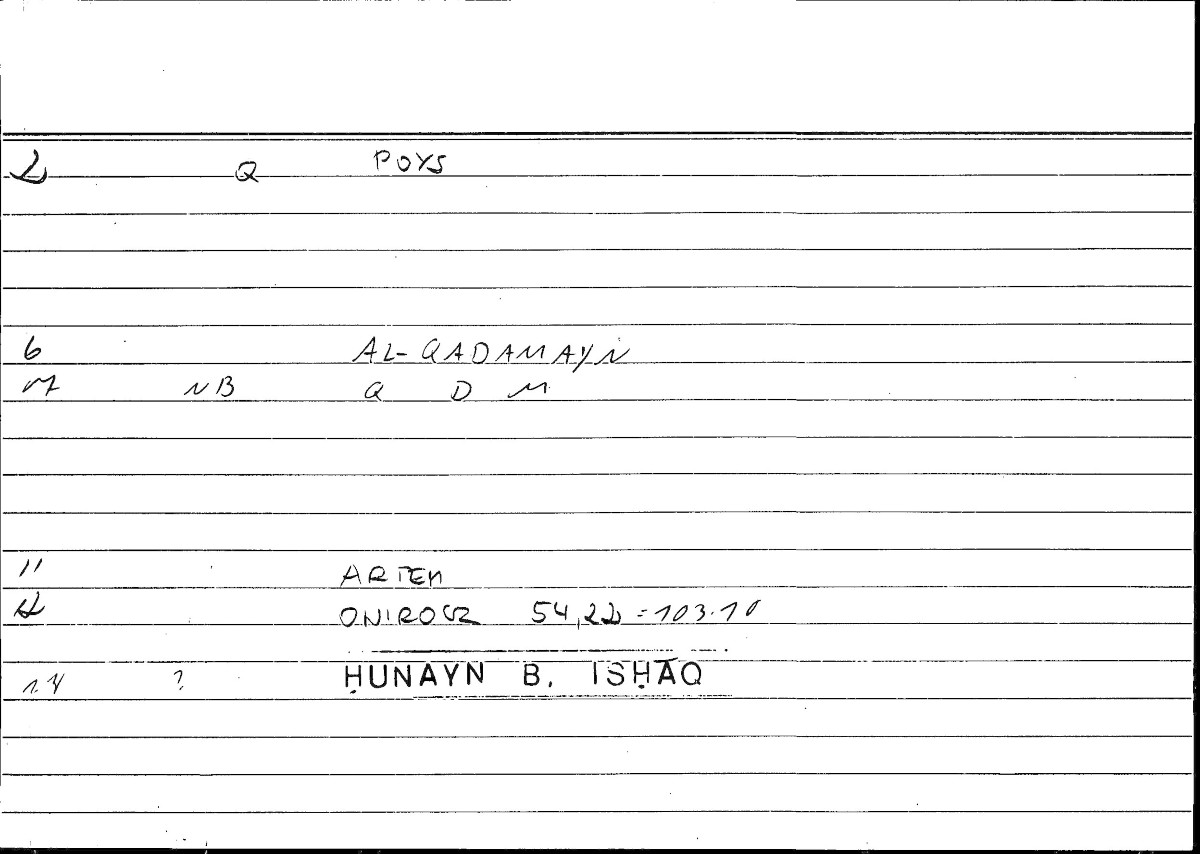 2 Q POYS
6 AL-QADAMAYN
07 NB Q D M
11 ARTEM
12 ONIROCR 54,22 = 103.10
14 ? ḤUNAYN B. ISḤĀQ